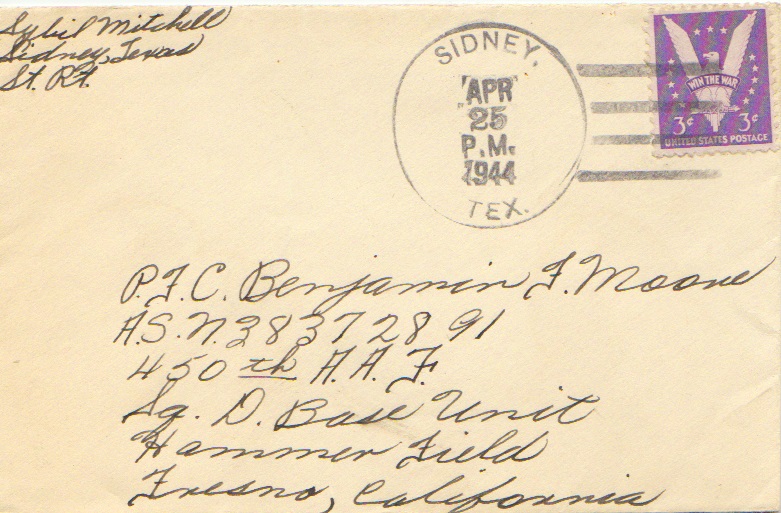 Sybil Mitchell
Sidney, Texas
St. Rt.
SIDNEY,
APR
25
P.M.
1944
TEX.
WIN THE WAR
3¢ 3¢
UNITED STATES POSTAGE
P.F.C. Benjamin F. Moore
A.S.N. 38372891
450th A.A.F.
Sq. D. Base Unit
Hammer Field
Fresno, California